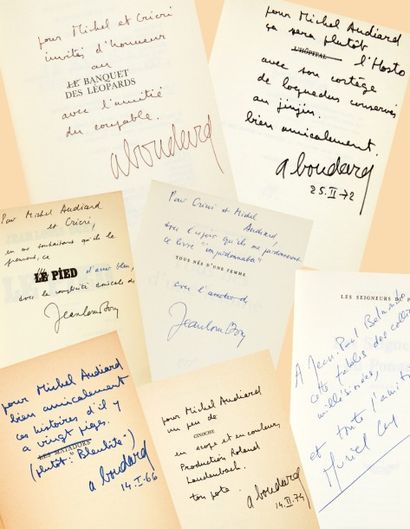 pour Michel et Cricri
invités d'honneur
au
LE BANQUET
DES LÉOPARDS
avec l'amitié
du coupable.
aboudard
pour Michel Audiard
ça sera plutôt
L'HÔPITAL l'Hosto
avec son cortège
de loquedus conservés
au jinjin.
bien amicalement.
aboudard
25.II-72
Pour Michel Audiard
et Cricri,
en me souhaitant qu'ils le
prennent, ce
LE PIED
d'azur bleu,
avec la complicité amicale de
Jean Louis Bory
Pour Cricri et Michel
Audiard
avec l'espoir qu'ils me pardonneront
ce livre "impardonnable"
TOUS NÉS D'UNE FEMME
avec l'amitié de
Jean Louis Bory
LES SEIGNEURS DU
A Jean Paul Belmondo
cette fable des collines
et toute l'amitié
Muriel
pour Michel Audiard
bien amicalement
ces histoires d'il y
a vingt piges.
LES MATADORS
(plutôt: "Bleubite")
a boudard
14-I-66
pour Michel Audiard
un peu de
CINOCHE
en scope et en couleurs
Production Roland
Laudenbach.
ton pote.
aboudard
14.II-74